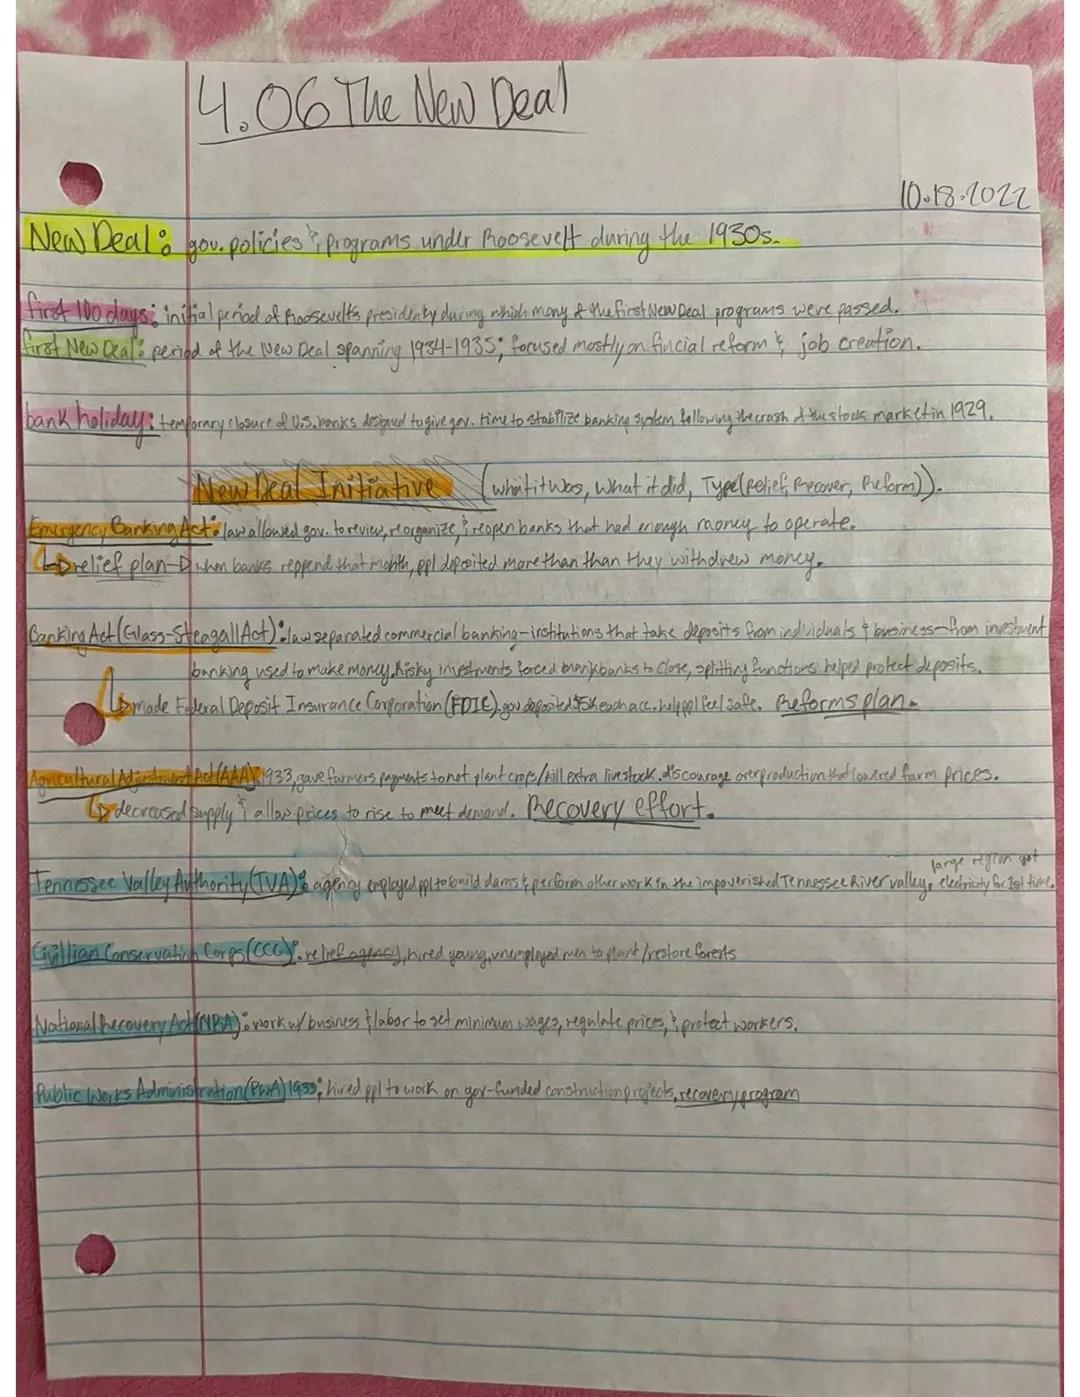 4.06 The New Deal
10.18.2022
New Deal: gov. policies & programs under Roosevelt during the 1930s.
first 100 days: initial period of Roosevelt's presidenty during which many of the first New Deal programs were passed.
first New Deal: period of the New Deal spanning 1934-1935; focused mostly on fincial reform & job creation.
bank holiday: temporary closure of U.S. banks designed to give gov. time to stabilize banking system following the crash of the stock market in 1929.
New Deal Initiative (what it was, what it did, Type (Relief, Recover, Reform)).
Emergency Banking Act: law allowed gov. to review, reorganize, & reopen banks that had enough money to operate.
relief plan → when banks reppend that month, ppl deposited more than than they withdrew money.
Banking Act (Glass-Steagall Act): law separated commercial banking-institutions that take deposits from individuals & business-from investment
banking used to make money. Risky investments forced banks to close, splitting functions helped protect deposits.
made Federal Deposit Insurance Corporation (FDIC). gov deposited $5K each acc. help ppl feel safe. Reforms plan.
Agricultural Adjustment Act (AAA): 1933, gave farmers payments to not plant crops/kill extra livestock. discourage overproduction that lowered farm prices.
decreased supply & allow prices to rise to meet demand. Recovery effort.
large region got
Tennessee Valley Authority (TVA): agency employed ppl to build dams & perform other work in the impoverished Tennessee River valley, electricity for 1st time.
Civillian Conservation Corps (CCC): relief agency, hired young, unemployed men to plant/restore forests
National Recovery Act (NRA): work w/ business & labor to set minimum wages, regulate prices, & protect workers.
Public Works Administration (PWA) 1933: hired ppl to work on gov-funded construction projects. recovery program